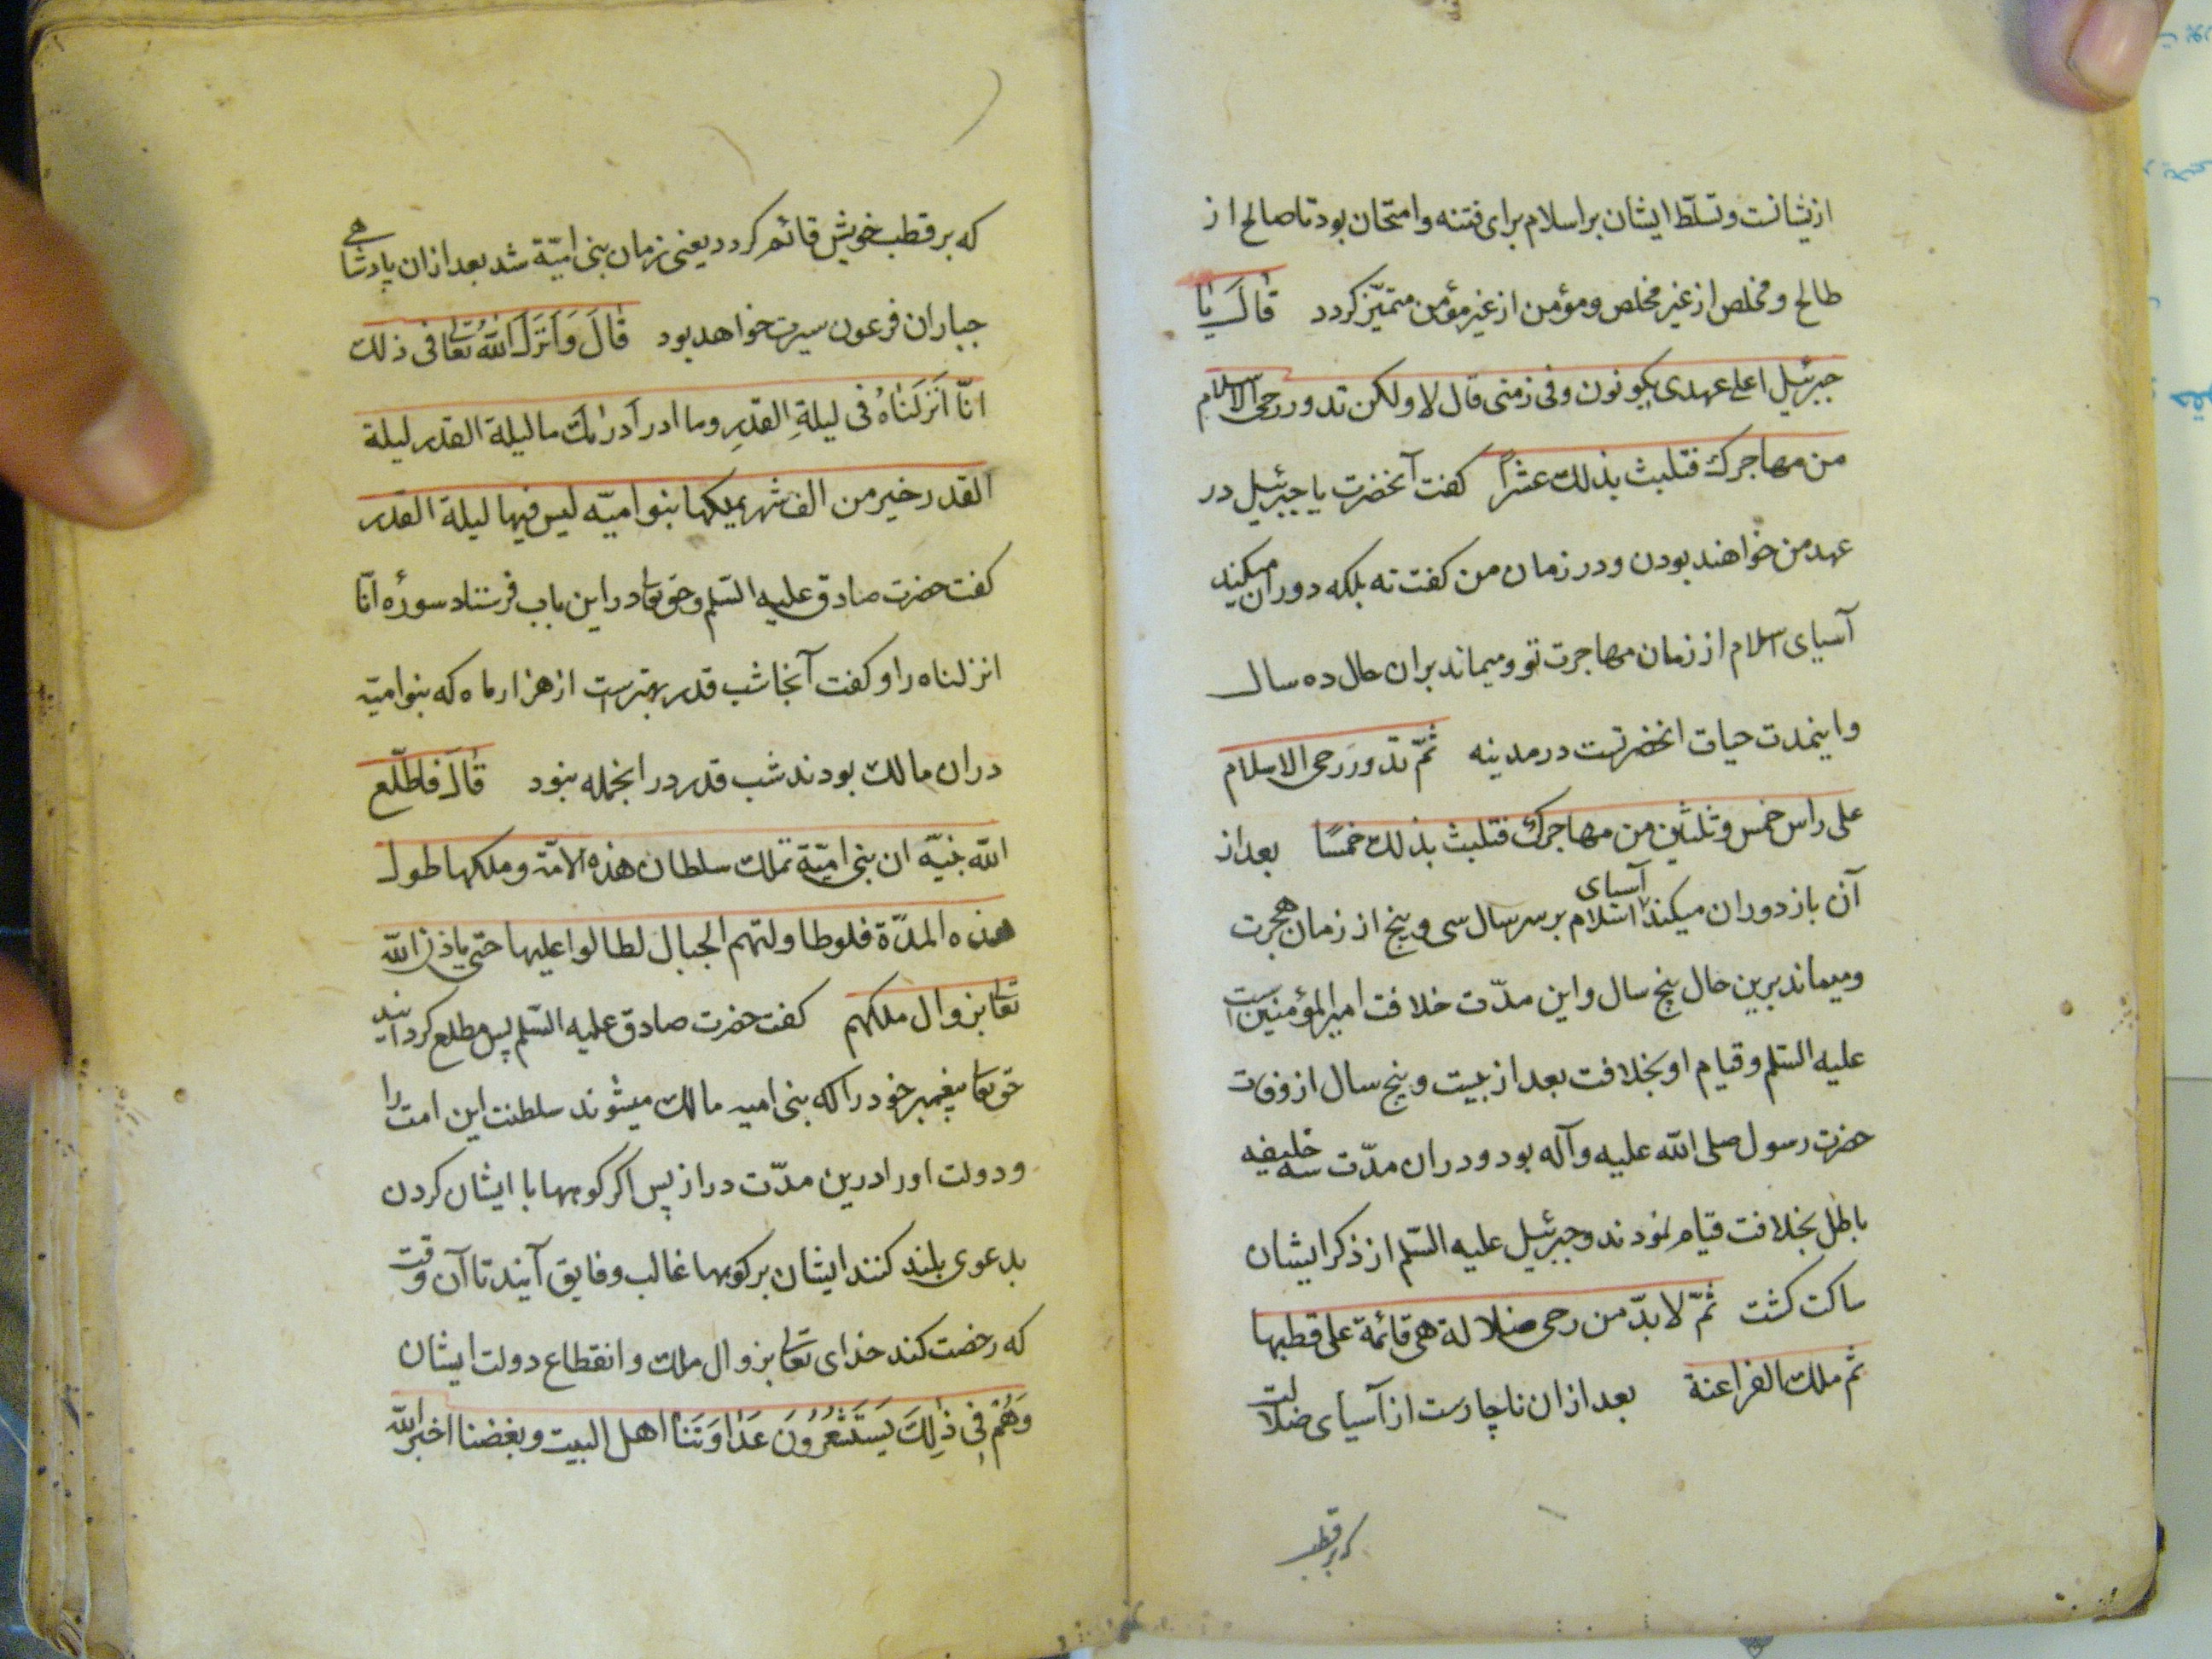 ازیشانت و تسلّط ایشان بر اسلام برای فتنه و امتحان بود تا صالح از
طالح و مخلص از غیر مخلص و مؤمن از غیر مؤمن متمیّز کردد قالَ یا
جبرئیل اعلی عهدی یکونون و فی زمنی قال لا ولکن تدور رحی الاسلام
من مهاجرك فتلبث بذلك عشراً کفت آنحضرت یا جبرئیل در
عهد من خواهند بودن و در زمان من کفت نه بلکه دوران میکند
آسیای اسلام از زمان مهاجرت تو و میماند بران حال ده سال
و اینمدت حیات انحضرتست در مدینه ثمّ تدور رَحی الاسلام
علی راس خمس و ثلثین من مهاجرك فتلبث بذلك خمسًا بعد از
آن باز دوران میکند آسیای اسلام بر سر سال سی و پنج از زمان هجرت
و میماند برین حال پنج سال و این مدّت خلافت امیرالمؤمنین است
علیه السّلم و قیام او بخلافت بعد از بیست و پنج سال از وفات
حضرت رسول صلی الله علیه وآله بود و دران مدّت سه خلیفه
باطل بخلافت قیام نمودند و جبرئیل علیه السّلم از ذکر ایشان
ساکت کشت ثمّ لا بدّ من رحی ضلالة هی قائمة علی قطبها
ثم ملك الفراعنة بعد ازان ناچارست از آسیای ضلالت
که بر قطب
که بر قطب خویش قائم کردد یعنی زمان بنی امیّة شد بعد ازان پادشاهی
جباران فرعون سیرت خواهد بود قالَ وَ اَنزَلَ اللّٰهُ تعالی فی ذلك
انّا اَنزَلناهُ فی لیلةِ القدرِ وما ادر اَدرٰیك ما لیلة القدر لیلة
القدر خیر من الف شهر یملکها بنوا امیّه لیس فیها لیلة القدر
کفت حضرت صادق علیه السّلم و حق تعا در این باب فرستاد سورهٔ انّا
انزلناه را و کفت آنجا شب قدر بهترست از هزار ماه که بنوا امیّه
دران مالك بودند شب قدر در انجمله نبود قالَ فاطّلع
اللّٰه نبیّه ان بنی امیّة تملك سلطان هذه الامّة و ملکها طول
هذه المدّة فلو طاولتهم الجبال لطالوا علیها حتی یاذن اللّٰه
تعالی بزوال ملکهم کفت حضرت صادق علیه السّلم پس مطلع کردانید
حق تعا پیغمبر خود را که بنی امیه مالك میشوند سلطنت این امت را
و دولت او را درین مدّت دراز پس اکر کوهها با ایشان کردن
بدعوی بلند کنند ایشان بر کوهها غالب و فایق آیند تا آن وقت
که رخصت کند خدای تعالی بزوال ملك و انقطاع دولت ایشان
وَهُمْ فِی ذٰلِكَ یَسْتَشْعِرُونَ عَدٰاوَتَنٰا اهل البیت و بغضنا اخبر اللّٰه